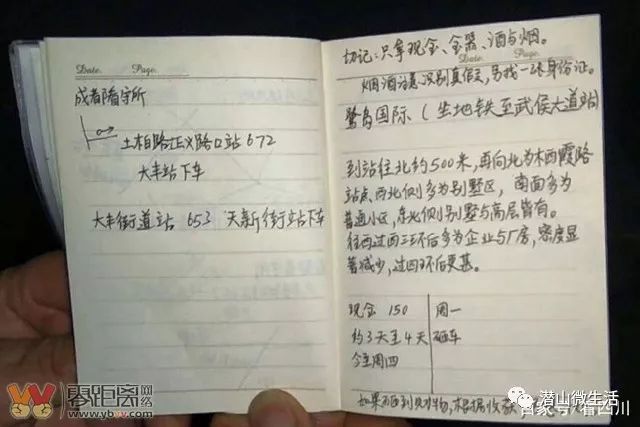 Date. Page.
成都看守所
土柏路正义路口站 672
大丰站下车
大丰街道站 653 天新街站下车
Date. Page.
切记：只拿现金、金器、酒与烟。
烟酒注意识别真假，另找一张身份证。
鹭岛国际（坐地铁至武侯大道站）
到站往北约500米，再向北为木西霞路
站点、西北侧多为别墅区，南面多为
普通小区，东北侧别墅与高层皆有。
往西过西三环后多为企业与厂房，密度显
著减少，过四环后更甚。
现金 150 周一
约3天至4天 砸车
今至周四
零距离网络
www.ybvv.com
潜山微生活
百家号/看四川